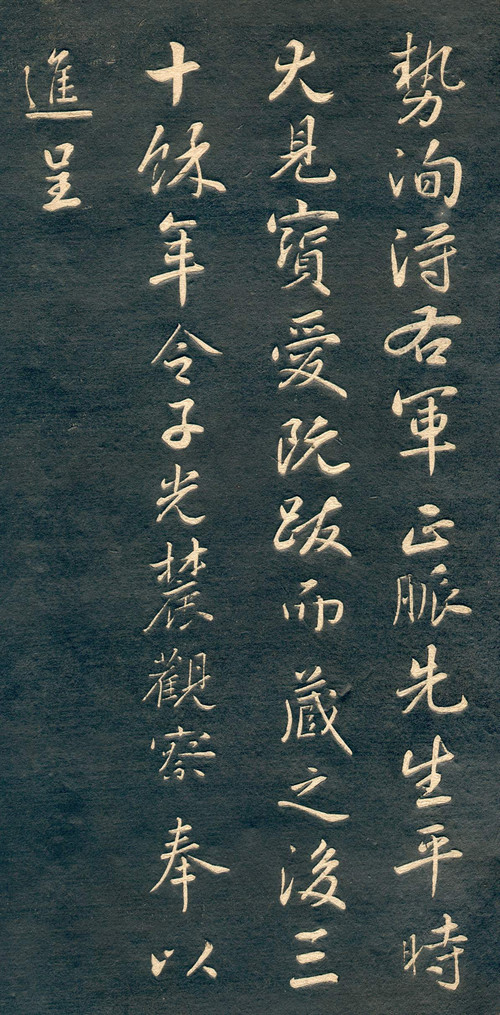 勢洵得右軍正脈先生平時
大見寳愛既跋而蔵之後三
十餘年令子光襛觀察奉以
進呈